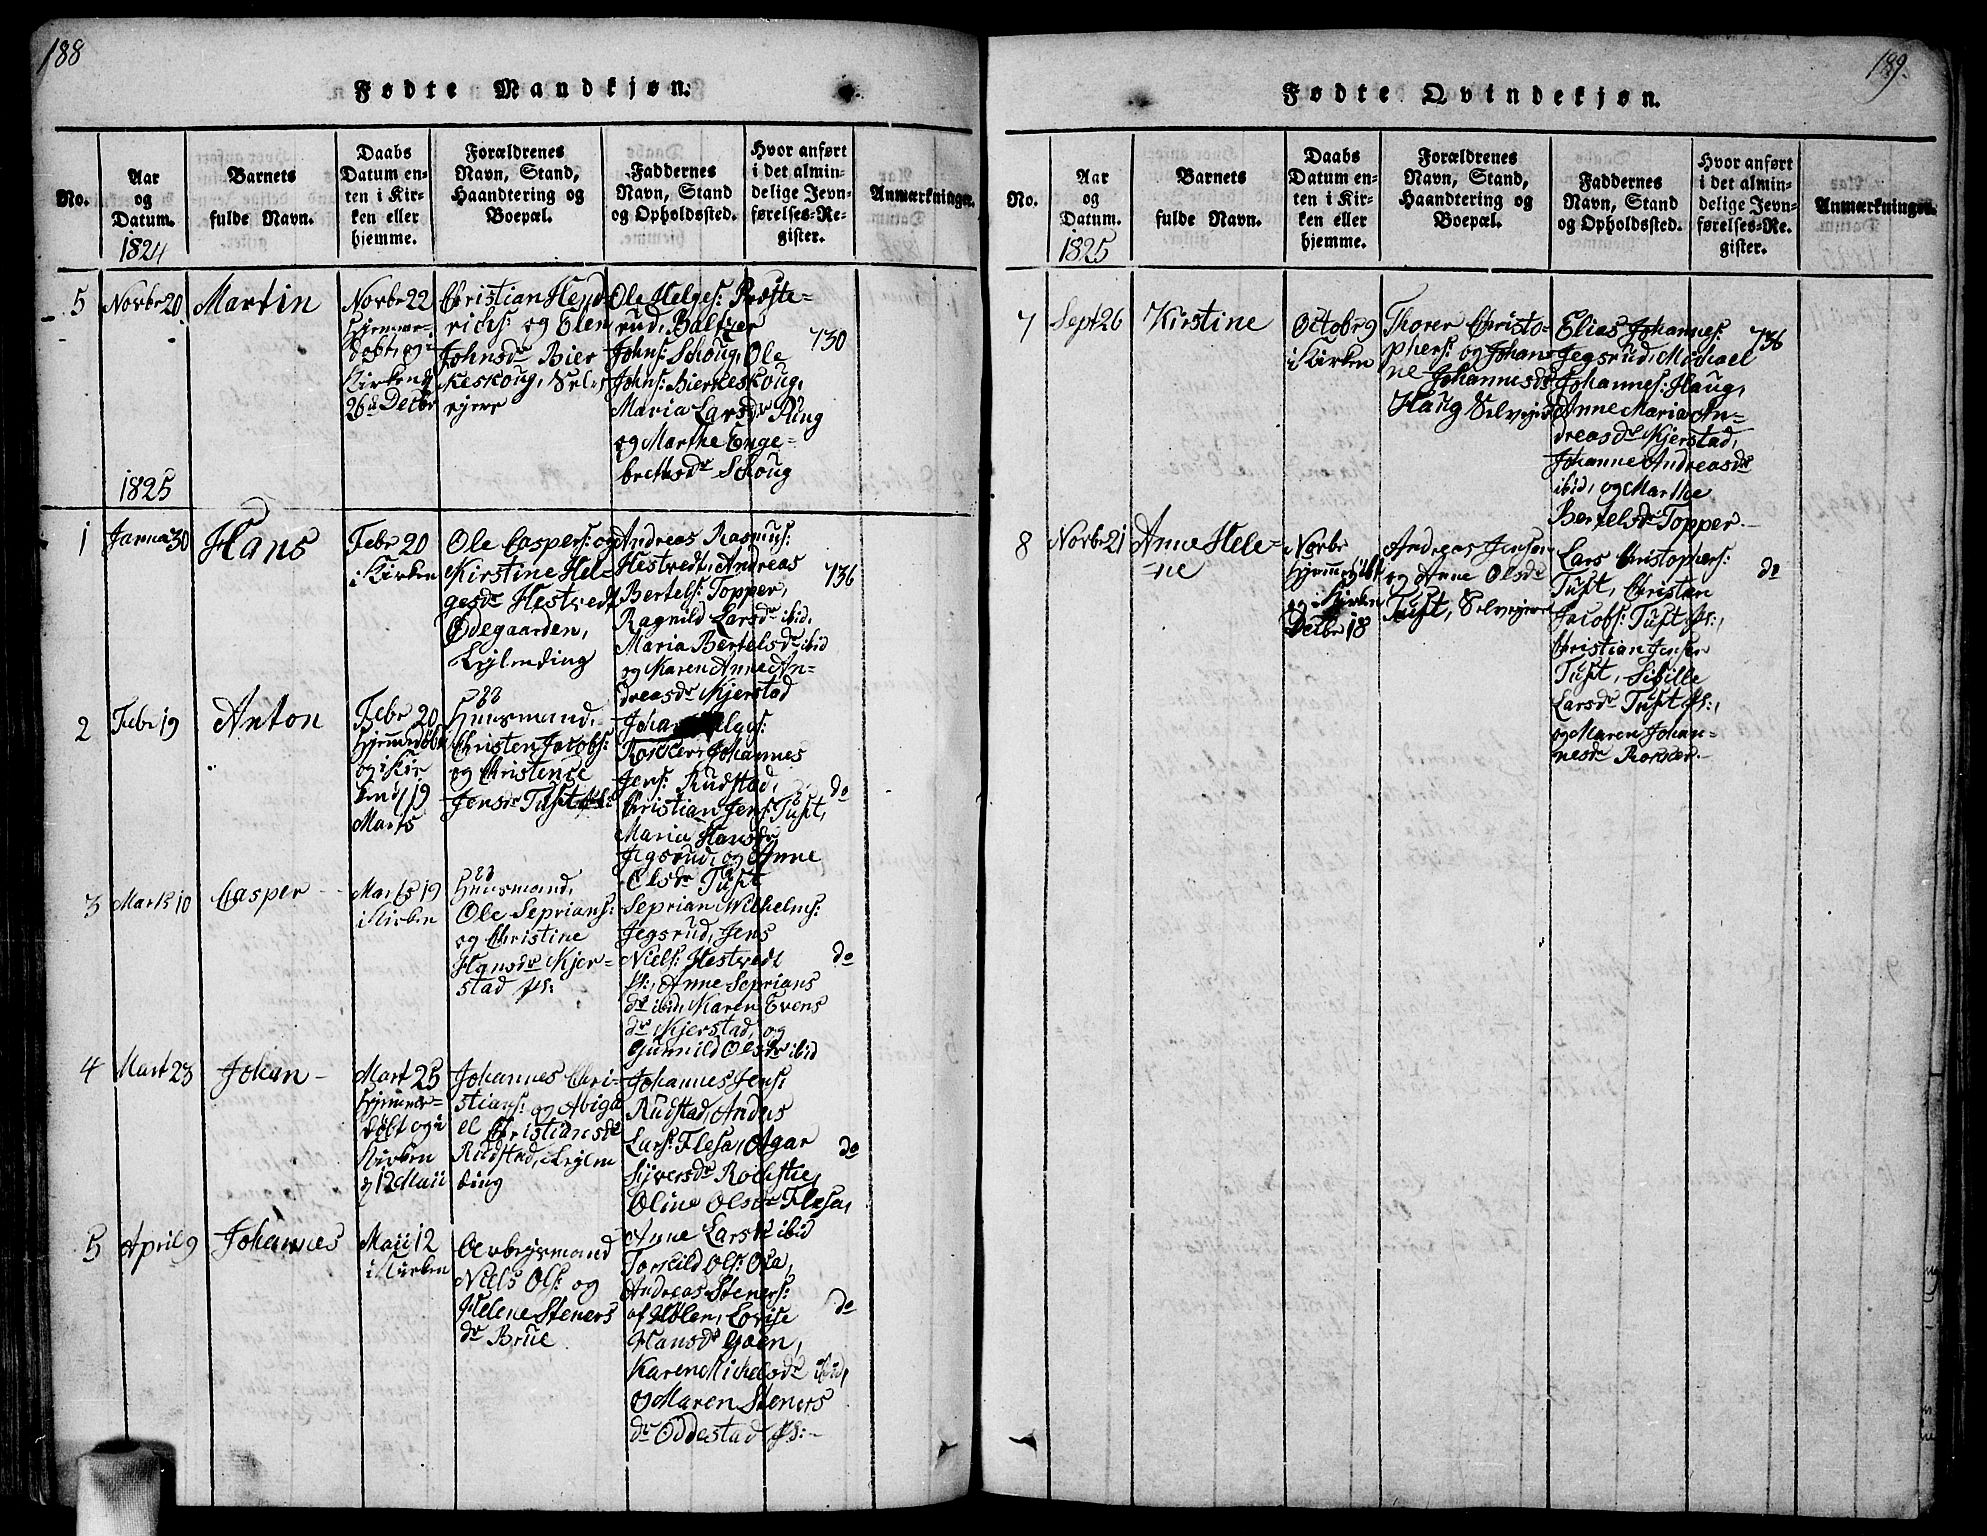 188
Fødte Mandkjøn.
No.
Aar
og
Datum.
1824
Barnets
fulde Navn.
Daabs
Datum en-
ten i Kir-
ken eller
hjemme.
Forældrenes
Navn, Stand,
Haandtering og
Boepæl.
Faddernes
Navn, Stand
og Opholdssted.
Hvor anført
i det almin-
delige Jevn-
førelses-Re-
gister.
Anmærkninger.
5
Novbr 20
Martin
Novbr 22
hjemme-
døbt, og i
Kirken d
26d Decbr
Christian Hend-
richs: og Elen
Johnsdr Bier
keskoug, Selv
ejere
Ole Helges: Præste-
rud, Baltzer
Johns: Schoug, Ole
Johns: Bierkeskoug,
Maria Larsdr Ring
og Marthe Enge-
brethsdr Schoug
730
1825
1
Janua 30
Hans
Febr 20
i Kirken
Ole Caspers: og
Kirstine Hel-
gesdr Hestvedt
Ødegaarden,
Lejlending
Andreas Rasmus:
Hestvedt, Andreas
Bertels: Topper,
Ragnild Larsdr ibid,
Maria Bertelsdr ibid
og Karen Anne An-
dreasdr Kjerstad
736
2
Febr 19
Anton
Febr 20
hjemmedøbt
og i Kir
ken d 19
Marts
Huusmand,
Christen Jacobs:
og Christence
Jensdr Tuft
Rokker, Johannes
Jens: Rudstad,
Christian Jens: Tuft,
Maria Hansdr
Jegsrud, og Anne
Olsdr Tuft
do
3
Marts 10
Casper
Marts 19
i Kirken
Huusmand,
Ole Seprians:
og Christine
Hansdr Kjer-
stad
Seprian Wilhelms:
Jegsrud, Jens
Niels: Hestvedt
Anne Seprians
dr ibid, Karen Evens
dr Kjerstad, og
Gunnild Olsdr ibid
do
4
Mart 23
Johan
Mart 25
hjemme-
døbt og i
Kirken
12 Maii
Johannes Chri-
stians: og Abiga
el Christiansdr
Rudstad, Lejlen
ding
Johannes Jens:
Rudstad, Anders
Lars: Flesa, Agar
Syversdr
Oline Olsdr Flesa,
Anne Larsdr ibid
do
5
April 9
Johannes
Maii 12
i Kirken
Arbejsmand
Niels Ols: og
Helene Steners
dr Brue
Torkild Ols:
Andreas Steners:
af Holen, Lovise
Hansdr Goen,
Karen Michelsdr ibid,
og Maren Steners
dr Oddestad
do
189.
Fødte Qvindekjøn.
No.
Aar
og
Datum.
1825
Barnets
fulde Navn.
Daabs
Datum en-
ten i Kir-
ken eller
hjemme.
Forældrenes
Navn, Stand,
Haandtering og
Boepæl.
Faddernes
Navn, Stand
og Opholdssted.
Hvor anført
i det almin-
delige Jevn-
førelses-Re-
gister.
Anmærkninger.
7
Sept 26
Kirstine
October 9
i Kirken
Thorer Christo-
phers: og Johan-
ne Johannesdr
Haug Selvejere
Elias Johannes:
Jegsrud, Michael
Johannes: Haug,
Anne Maria An-
dreasdr Kjerstad,
Johanne Andreasdr
ibid, og Marthe
Bertelsdr Topper.
736
8
Novbr 21
Anne Hele-
ne
Novbr
hjemmedøbt
og i Kirken
Decbr 18
Andreas Jensen
og Anne Olsdr
Tuft, Selvejere
Lars Christophers:
Tuft, Christen
Jacobs: Tuft
Christian Jenser
Tuft, Sibille
Larsdr Tuft
og Maren Johan-
nesdr
do